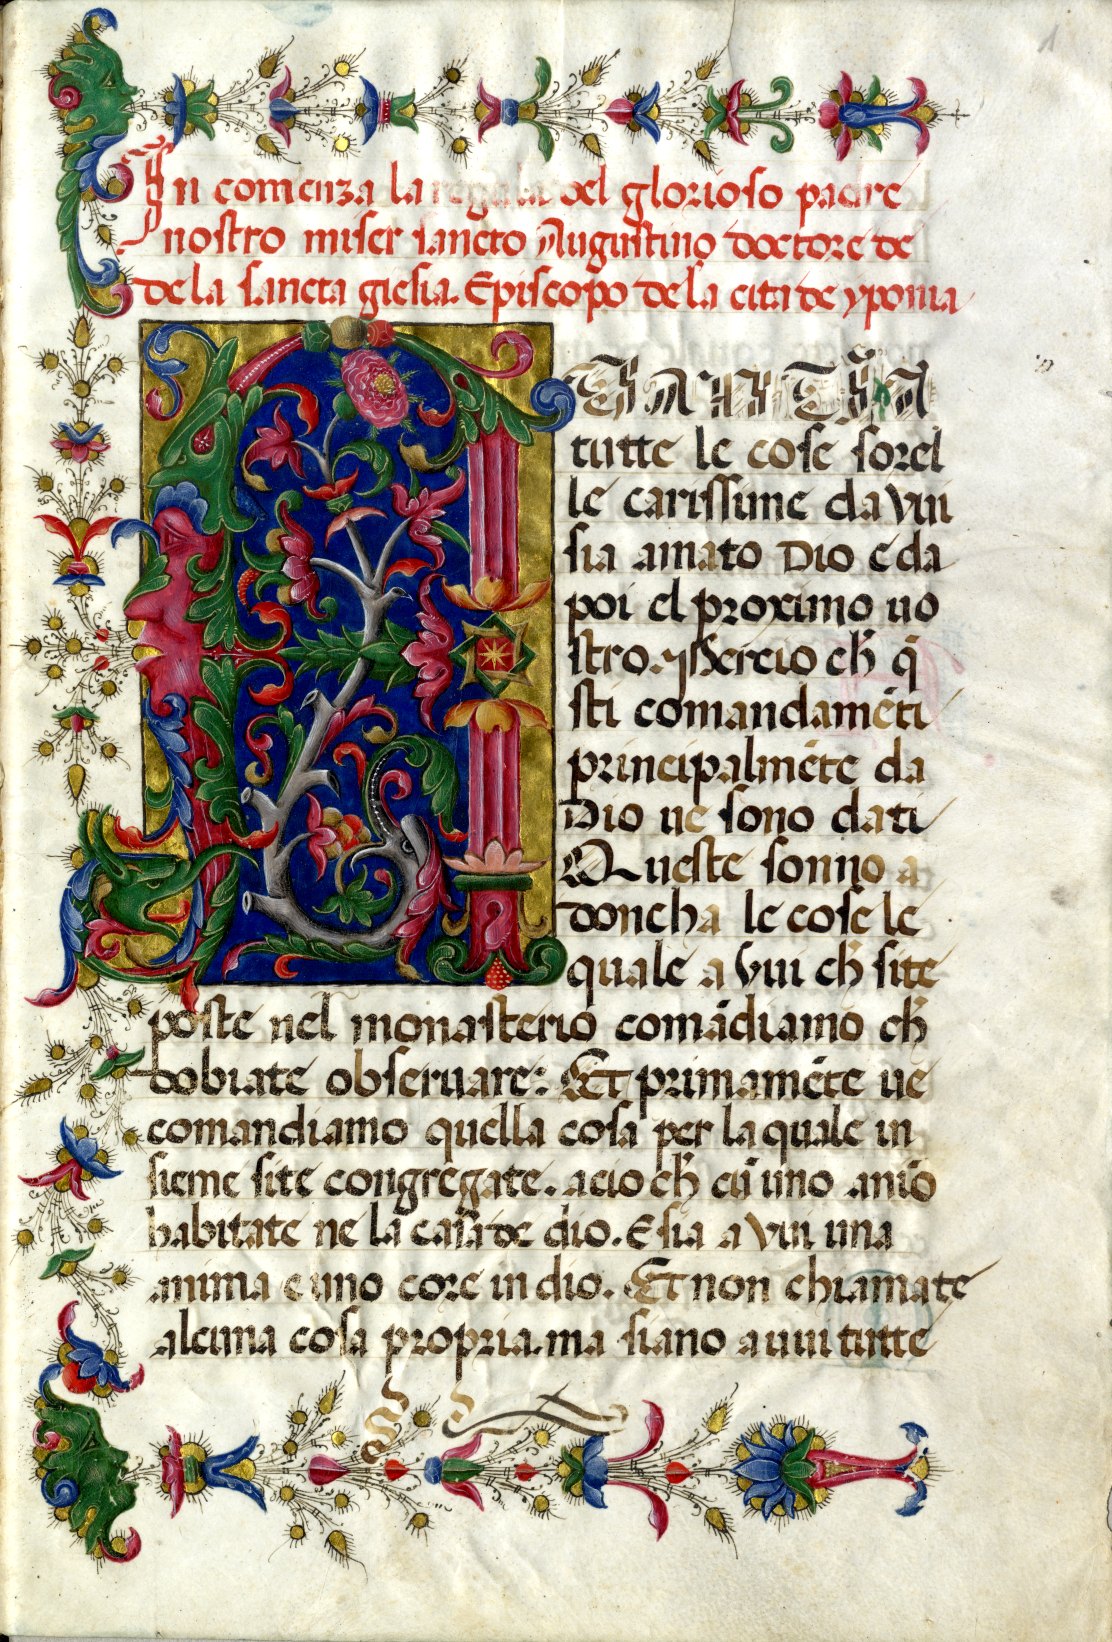 1
In comenza la regula del glorioso padre
nostro miser sancto Augustino doctore de
de la sancta giesia. Episcopo de la cita de yponia
A
NANTI A
tutte le cose sorel
le carissime da vui
sia amato Dio e da
poi el proximo uo
stro. Perció ch̄ q̄
sti comandamēti
principalmēte da
Dio ne sono dati
Queste sonno a
doncha le cose le
quale a vui ch̄ site
poste nel monasterio comādiamo ch̄
dobiate obseruare: Et primamēte ue
comandiamo quella cosa per la quale in
sieme site congregate. acio ch̄ cū uno anīo
habitate ne la casa de dio. E sia a vui una
anima e uno core in dio. Et non chiamate
alcuna cosa propria. ma siano a uui tutte